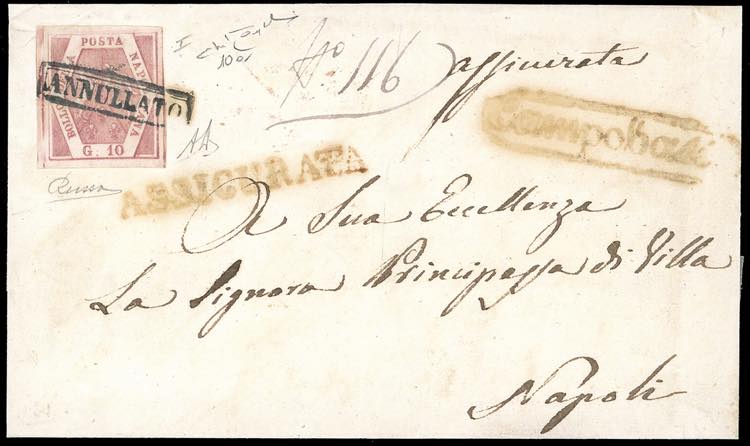 POSTA NAPOLETANA
BOLLO
G. 10
ANNULLATO
No 116 assicurata
Campobasso
ASSICURATA
A Sua Eccellenza
La Signora Principessa di Villa
Napoli